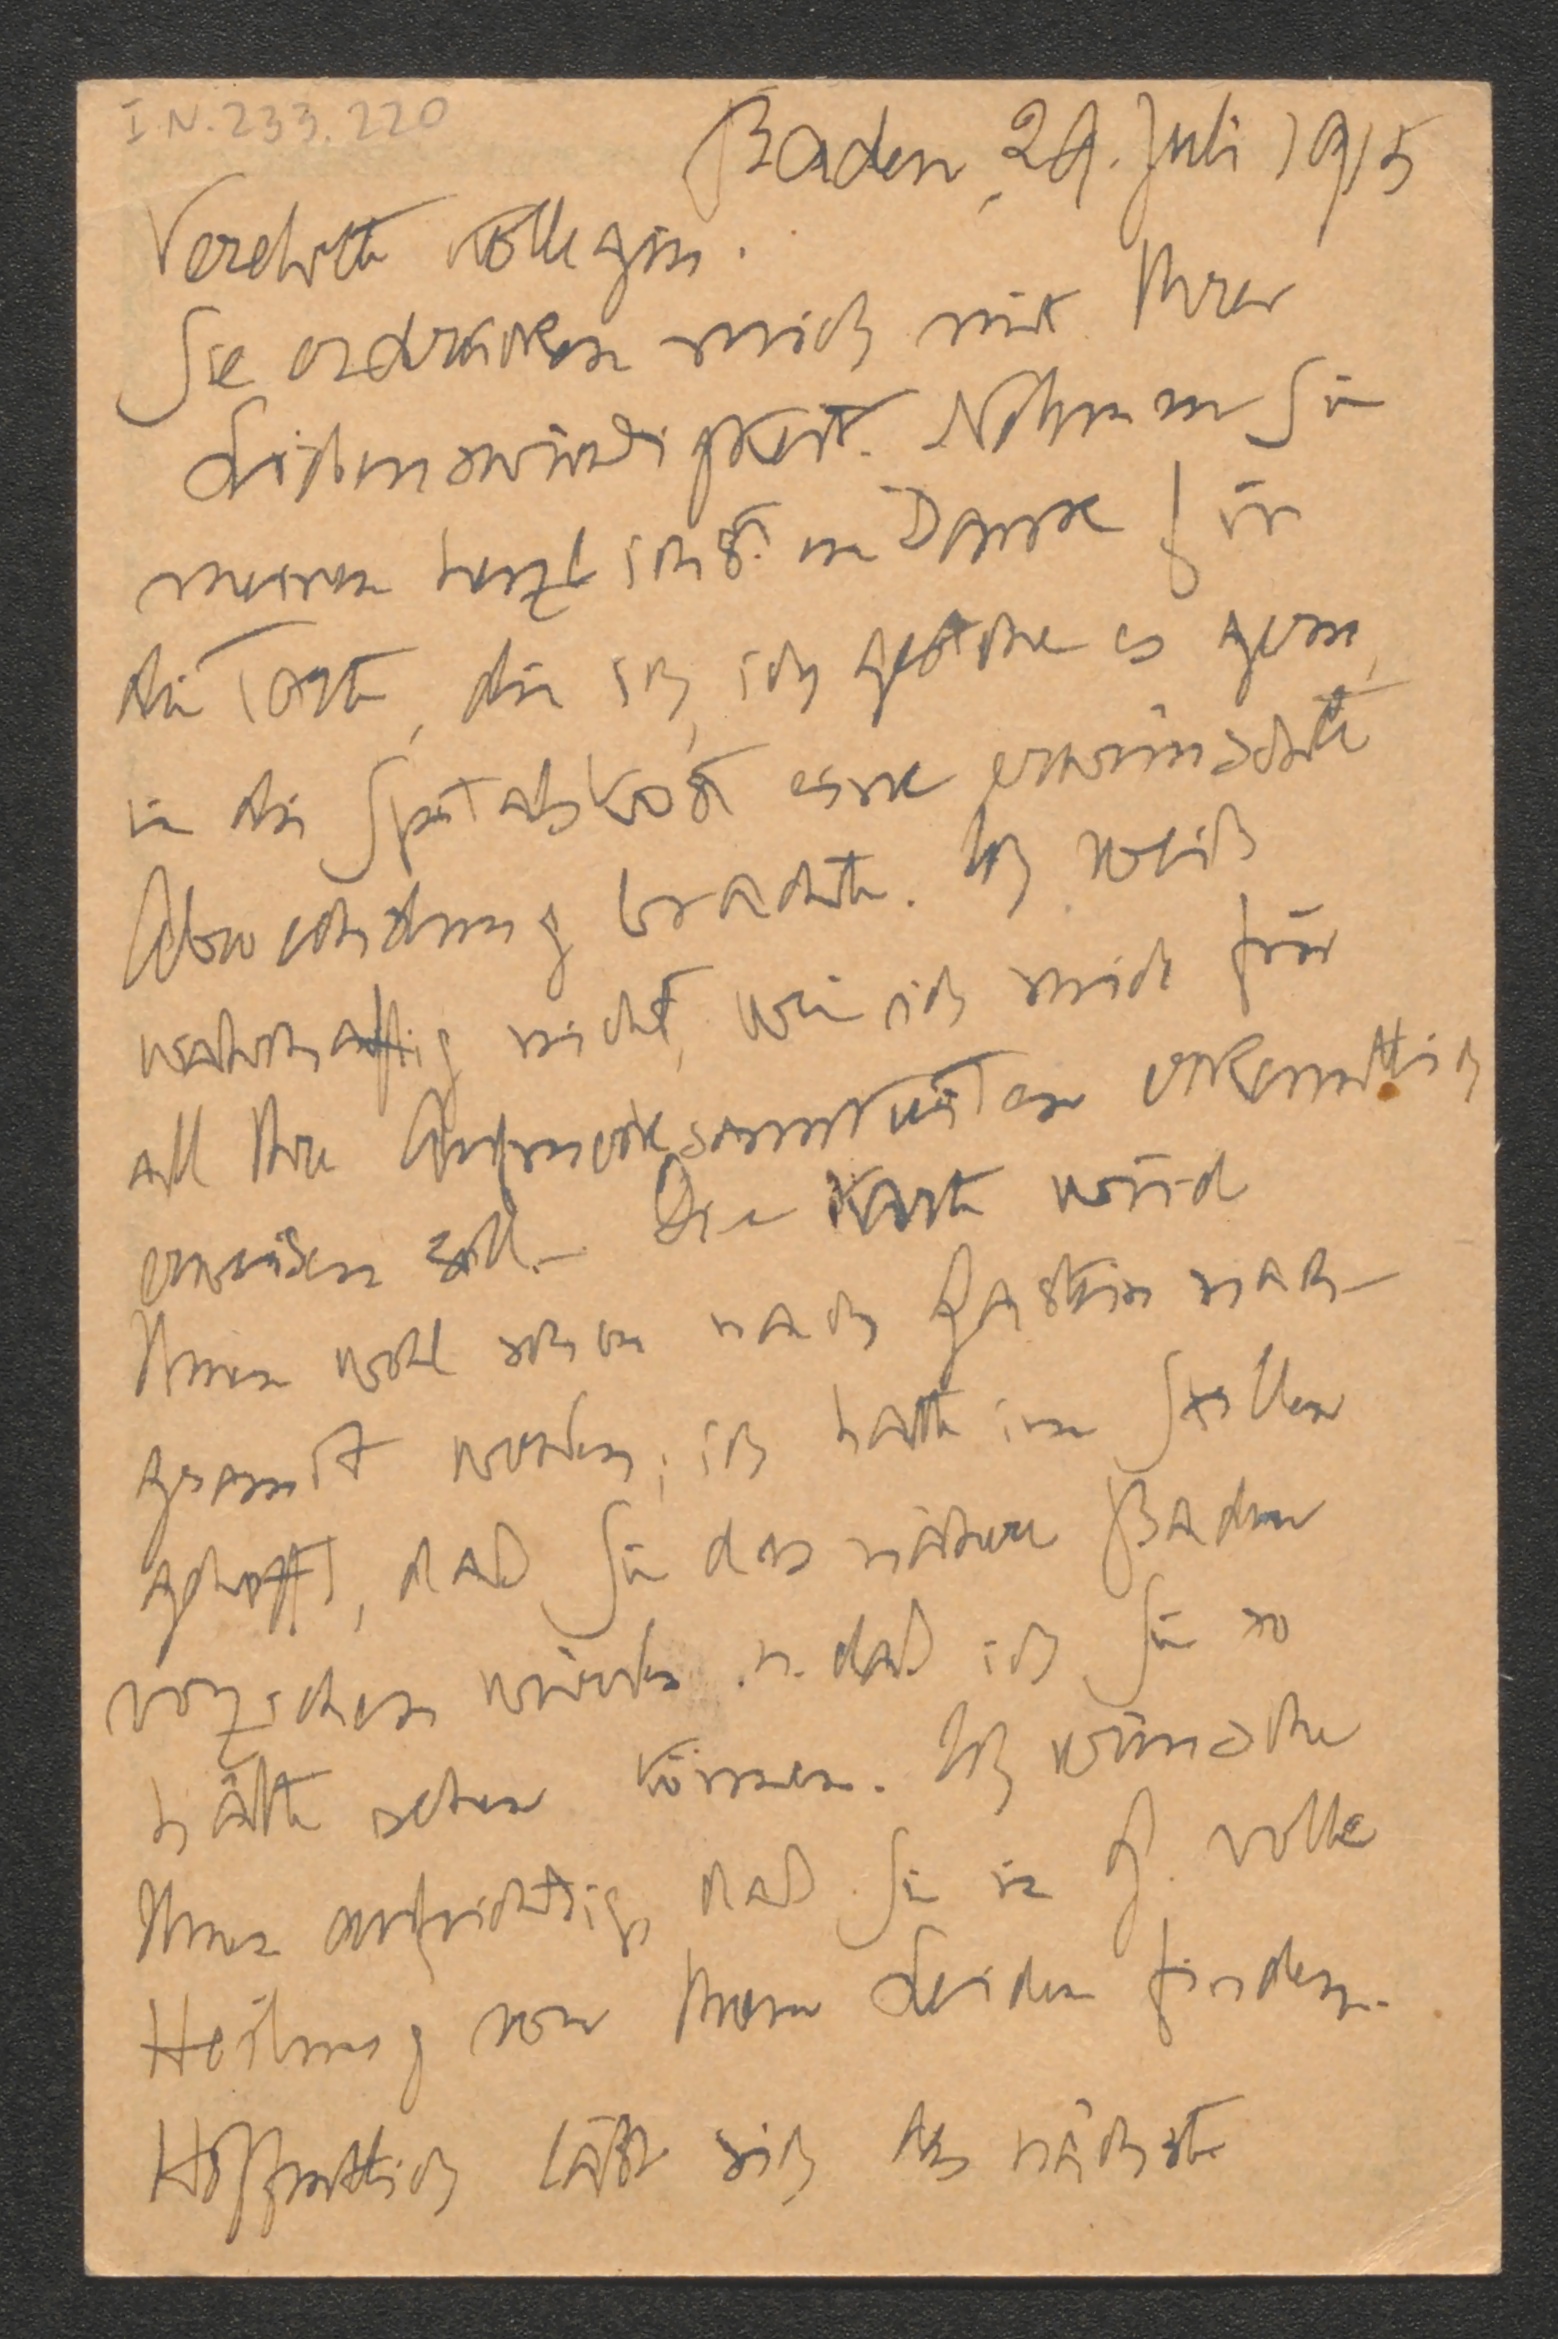 I.N. 233.220
Baden, 29. Juli 1915
Verehrte Kollegin.
Sie erdrücken mich mit Ihrer
Liebenswürdigkeit. Nehmen Sie
meinen herzlichsten Dank für
die Torte, die ich, ich gestehe es gerne,
in die Spitalskost eine erwünschte
Abwechslung brachte. Ich weiß
wahrhaftig nicht, wie ich mich für
all Ihre Aufmerksamkeiten erkenntlich
erweisen soll. – Die Karte wird
Ihnen wohl schon nach Gastein nach-
gesandt worden; ich hatte im Stillen
gehofft, daß Sie das nähere Baden
vorziehen würden u. daß ich Sie so
hätte sehen können. Ich wünsche
Ihnen aufrichtig, daß Sie in G. volle
Heilung von Ihrem Leiden finden.
Hoffentlich läßt sich das nächste